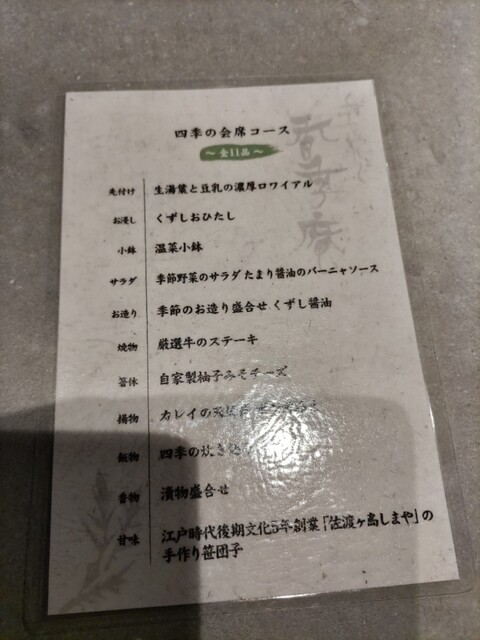 四季の会席コース
～全11品～
先付け 生湯葉と豆乳の濃厚ロワイアル
お浸し くずしおひたし
小鉢 温菜小鉢
サラダ 季節野菜のサラダ たまり醤油のバーニャソース
お造り 季節のお造り盛合せ くずし醤油
焼物 厳選牛のステーキ
箸休 自家製柚子みそチーズ
揚物 カレイの
飯物 四季の炊き込
香物 漬物盛合せ
甘味 江戸時代後期文化5年創業「佐渡ヶ島しまや」の
手作り笹団子